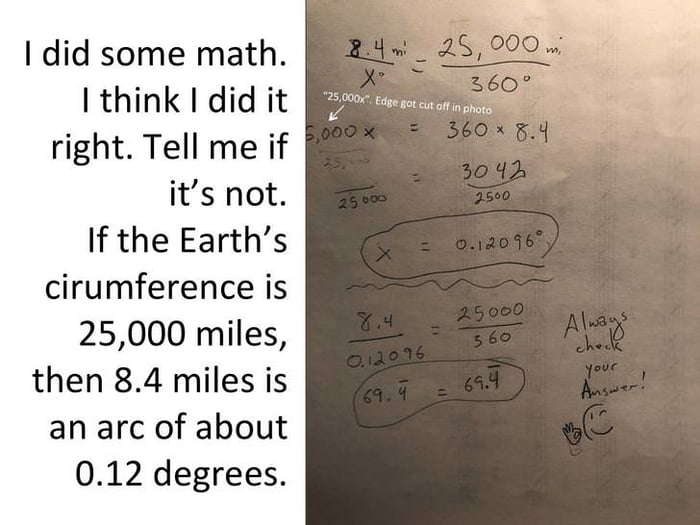 I did some math.
I think I did it
right. Tell me if
it’s not.
If the Earth’s
cirumference is
25,000 miles,
then 8.4 miles is
an arc of about
0.12 degrees.
8.4 mi = 25,000 mi,
X° 360°
"25,000x". Edge got cut off in photo
5,000 x = 360 × 8.4
25,
= 3042
25000 2500
x = 0.12096°
8.4 = 25000
0.12096 360
69.4̅ = 69.4̅
Always
check
your
Answer!